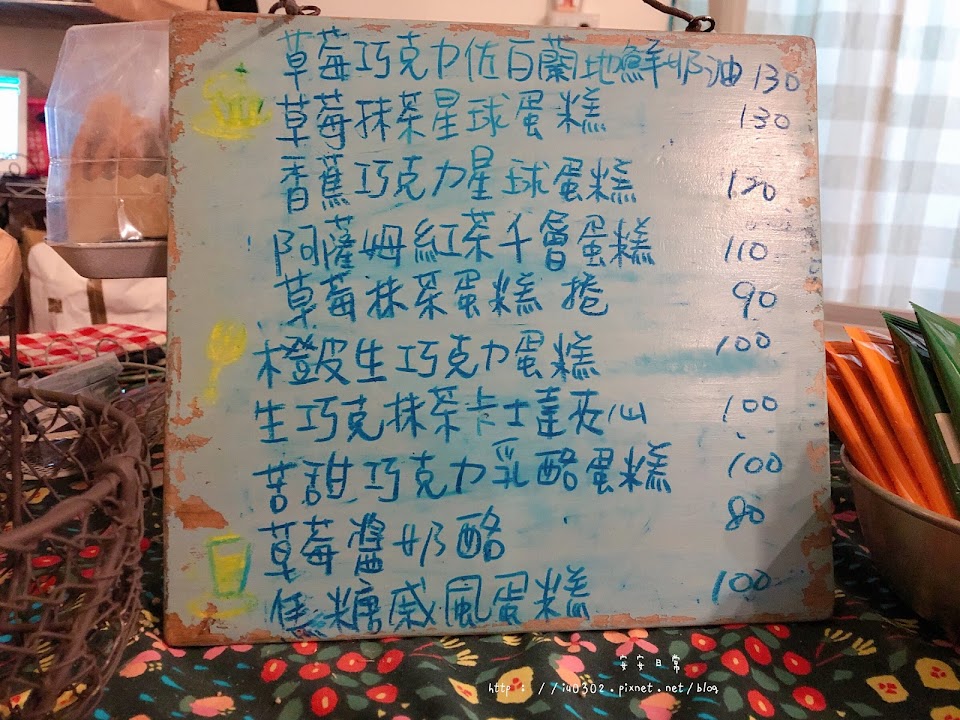 草莓巧克力佐白蘭地鮮奶油 130
草莓抹茶星球蛋糕 130
香蕉巧克力星球蛋糕 120
阿薩姆紅茶千層蛋糕 110
草莓抹茶蛋糕捲 90
橙皮生巧克力蛋糕 100
生巧克抹茶卡士達夾心 100
苦甜巧克力乳酪蛋糕 100
草莓醬奶酪 80
焦糖戚風蛋糕 100
安安日常
http://i40302.pixnet.net/blog